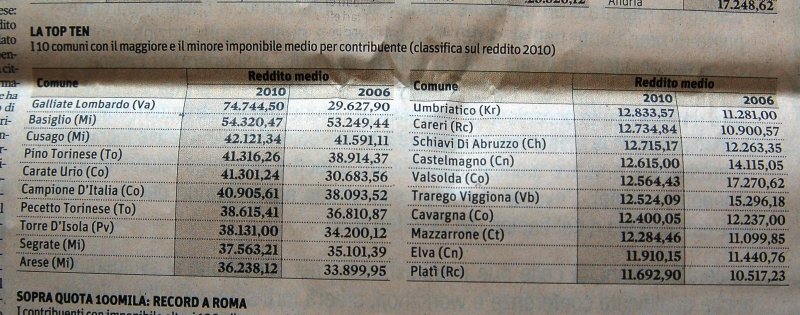 ese:
17.248,62
LA TOP TEN
I 10 comuni con il maggiore e il minore imponibile medio per contribuente (classifica sul reddito 2010)
Comune Reddito medio
2010 2006
Galliate Lombardo (Va) 74.744,50 29.627,90
Basiglio (Mi) 54.320,47 53.249,44
Cusago (Mi) 42.121,34 41.591,11
Pino Torinese (To) 41.316,26 38.914,37
Carate Urio (Co) 41.301,24 30.683,56
Campione D'Italia (Co) 40.905,61 38.093,52
Pecetto Torinese (To) 38.615,41 36.810,87
Torre D'Isola (Pv) 38.131,00 34.200,12
Segrate (Mi) 37.563,21 35.101,39
Arese (Mi) 36.238,12 33.899,95
Comune Reddito medio
2010 2006
Umbriatico (Kr) 12.833,57 11.281,00
Careri (Rc) 12.734,84 10.900,57
Schiavi Di Abruzzo (Ch) 12.715,17 12.263,35
Castelmagno (Cn) 12.615,00 14.115,05
Valsolda (Co) 12.564,43 17.270,62
Trarego Viggiona (Vb) 12.524,09 15.296,18
Cavargna (Co) 12.400,05 12.237,00
Mazzarrone (Ct) 12.284,46 11.099,85
Elva (Cn) 11.910,15 11.440,76
Platì (Rc) 11.692,90 10.517,23
SOPRA QUOTA 100MILA: RECORD A ROMA
I contribuenti con imponibile